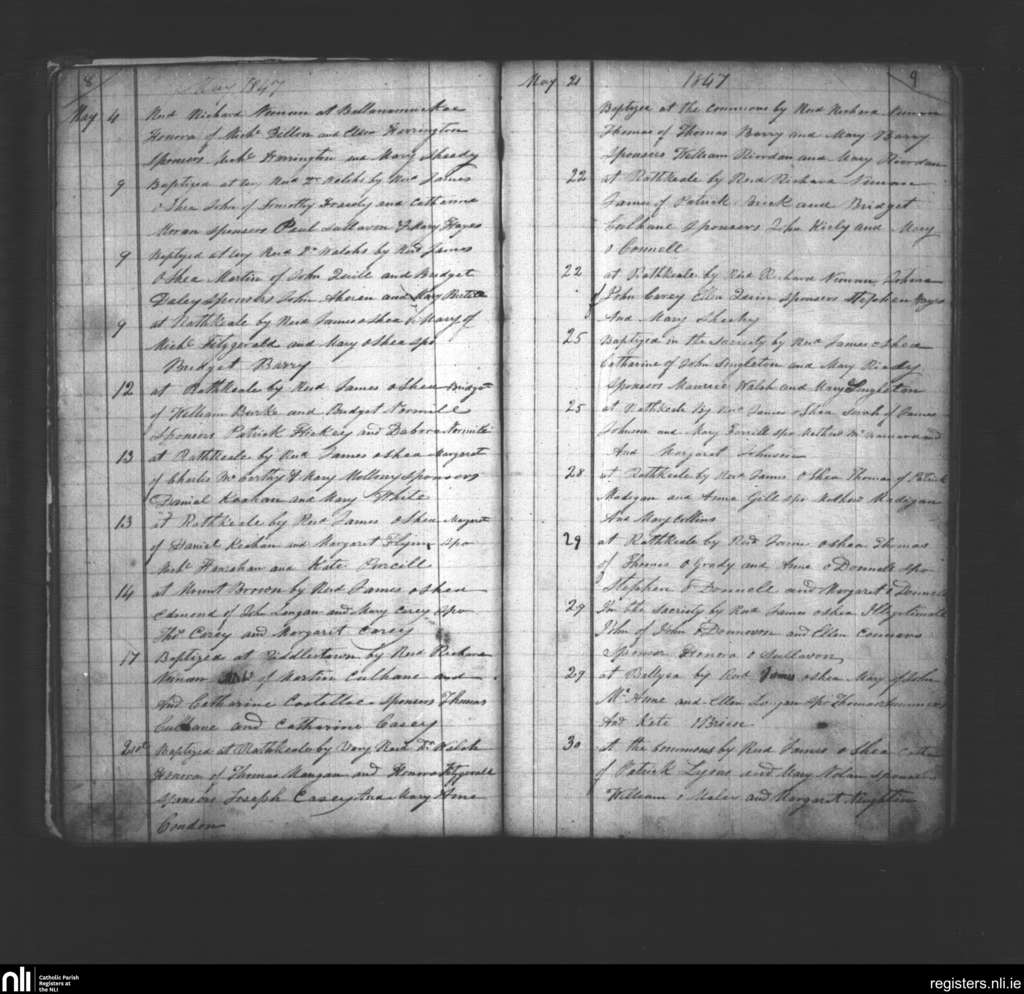 8
May 1847
May 4 Revd Richard Noonan at Ballanamuckae
Honora of Michl Dillon and Ellen Harrington
Sponsors Michl Harrington and Mary Sheedy
9 Baptized at Very Revd Dr Walshs by Revd James
o Shea John of Timothy and Catherine
Moran sponsors Paul Sullavon & Mary Hayes
9 Baptized at Very Revd Dr Walshs by Revd James
O Shea Martin of John Quill and Bridget
Daley Sponsors John Aheran and Mary
9 at Rathkeale by Revd James o Shea Mary of
Michl Fitzgerald and Mary o Shea spo
Bridget Barry
12 at Rathkeale by Revd James o Shea Bridget
of William Burke and Bridget Normile
Sponsors Patrick Hickey and Debora Normile
13 at Rathkeale by Revd James o Shea Margaret
of Charles McCarthy & Mary Mollony sponsors
Daniel Keahan and Mary White
13 at Rathkeale by Revd James o Shea Margaret
of Daniel Keahan and Margaret Flynn spo
Michl Hanrahan and Kate Purcill
14 at Mount Brown by Revd James o Shea
Edmond of John Langan and Mary Carey spo
Thos Carey and Margaret Carey
17 Baptized at Riddlestown by Revd Richard
Noonan of Martin Culhane and
And Catharine Costelloe sponsors Thomas
Culhane and Catharine Casey
Baptized at Rathkeale by Very Revd Dr Walsh
Honora of Thomas Mangan and Honora Fitzgerald
Sponsors Joseph Casey And Mary Anne
Condon
May 21 1847 9
Baptized at the Commons by Revd Richard Noonan
Thomas of Thomas Barry and Mary Barry
Sponsers William Riordan and Mary Riordan
22 at Rathkeale by Revd Richard Noonan
James of Patrick Brick and Bridget
Culhane sponsors John Kiely and Mary
o Connell
22 at Rathkeale by Revd Richard Noonan Johana
John Carey Ellen sponsors Stephen Hayes
And Mary Sheehy
25 Baptized in the Sacristy by Revd James o Shea
Catharine of John Singleton and Mary Ready
Sponsors Maurice Walsh and Mary Singleton
25 at Rathkeale By Revd James o Shea Sarah of James
Johnson and Mary spo McNamara and
And Margaret Johnson
28 at Rathkeale by Revd James O Shea Thomas of Patrick
Madigan and Anne Gill spo Mathew Madigan
And Mary Collins
29 at Rathkeale by Revd James o Shea Thomas
of Thomas o Grady and Anne o Donnell spo
Stephen o Donnell and Margaret o Donnell
29 In the Sacristy by Revd James o Shea Illegitimate
John of John o Donnovon and Ellen Connors
Sponsor Honora o Sullavon
29 at Ballyea by Revd James o Shea Mary of John
Mc Anne and Ellen Langan spo Thomas
And Kate OBrien
30 At the Commons by Revd James o Shea
of Patrick Lyons and Mary Nolan sponsers
William o Maler and Margaret Naughton
nli
Catholic Parish
Registers at
the NLI
registers.nli.ie